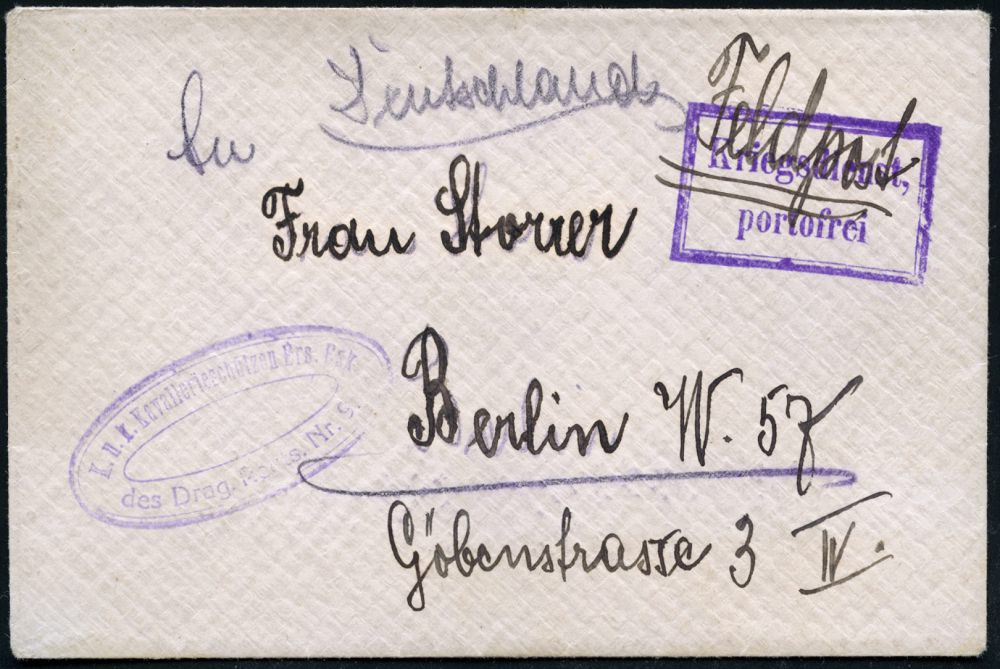 Deutschland
Feldpost
Kriegsdienst,
portofrei
An
Frau Storrer
K. u. k. Kavallerieschützen Ers. Esk.
des Drag. Regts. Nr. 9.
Berlin W. 57
Göbenstrasse 3 IV.